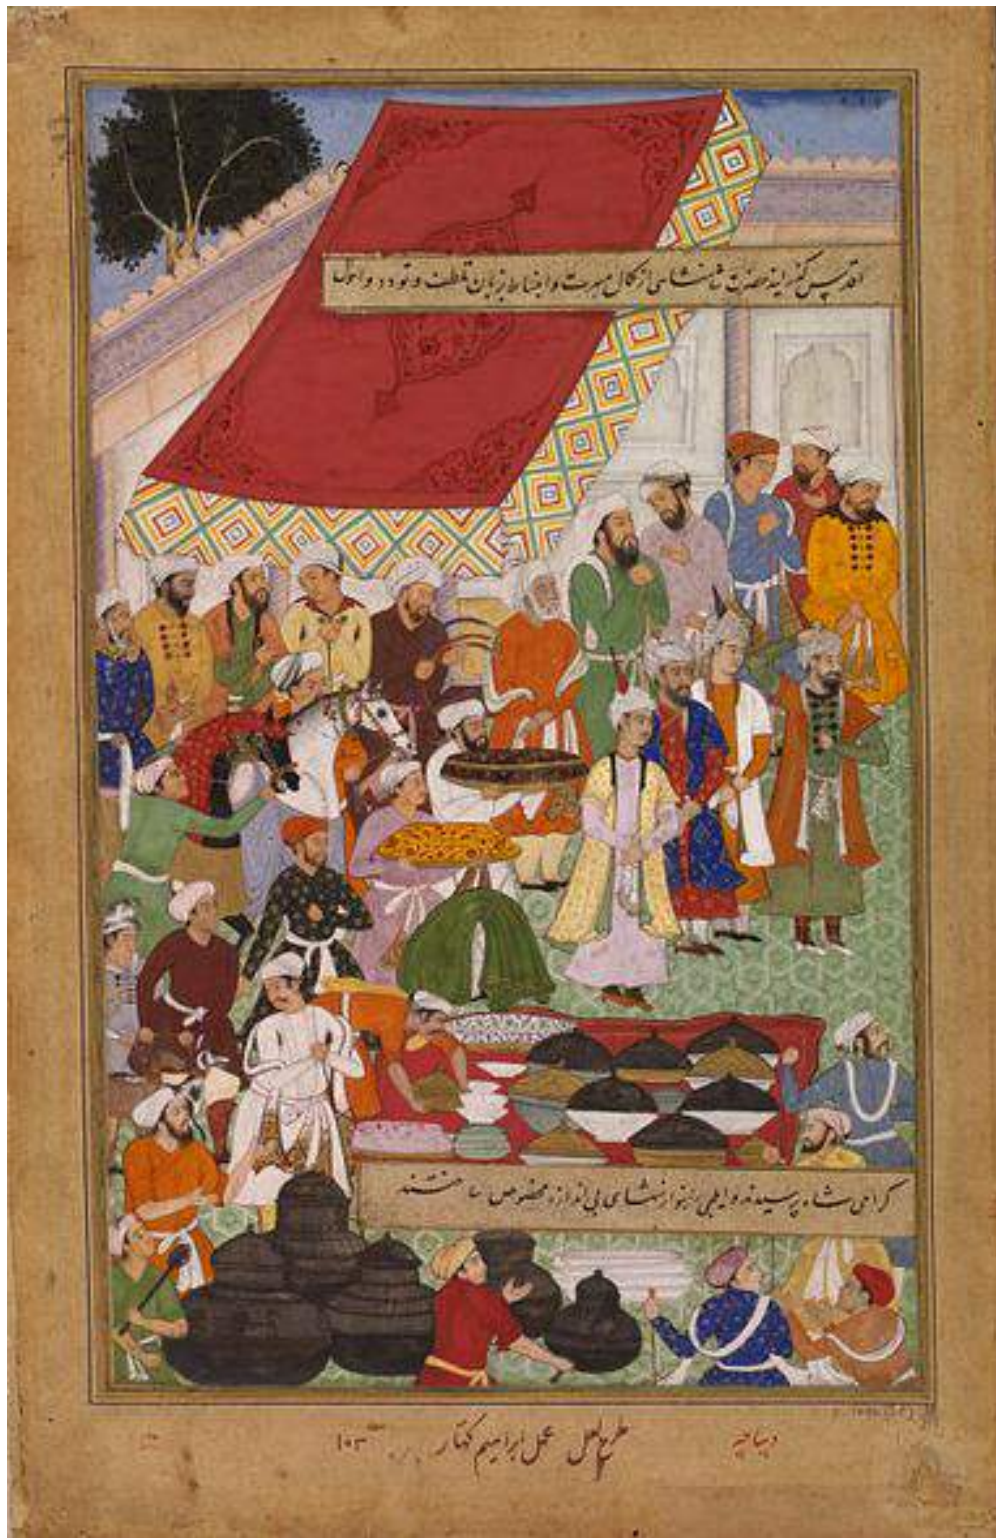 اقدس گذرانیدند حضرت شاهنشاهی از کمال مسرت و انبساط بزبان تلطف و تودد و احوال
گرامی شاه پرسیدند و ایلچی را بنوازشهای بی اندازه مخصوص ساختند
دیباچه
طرح لعل عمل ابراهیم کهار